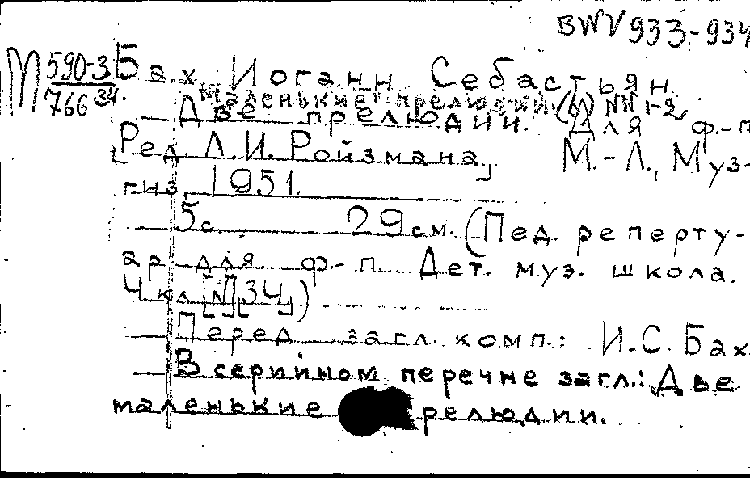 BWV 933-934
М 590-3
766 34
Бах Иоганн Себастьян.
Маленькие прелюдии (6) NN 1-2
Две прелюдии. Для ф-п
[Ред Л.И. Ройзмана] М.-Л., Муз-
гиз, 1951.
5с 29 см. (Пед. реперту-
ар для ф-п. Дет. муз. школа.
4 кл [N][34])
Перед загл. комп.: И.С. Бах
В серийном перечне загл.: Две
маленькие прелюдии.